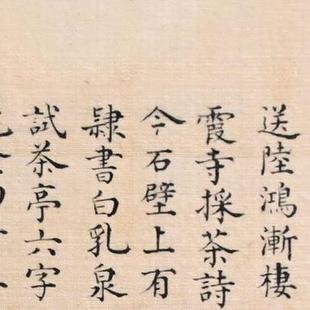 送陸鴻漸棲
霞寺採茶詩
今石壁上有
隷書白乳泉
試茶亭六字